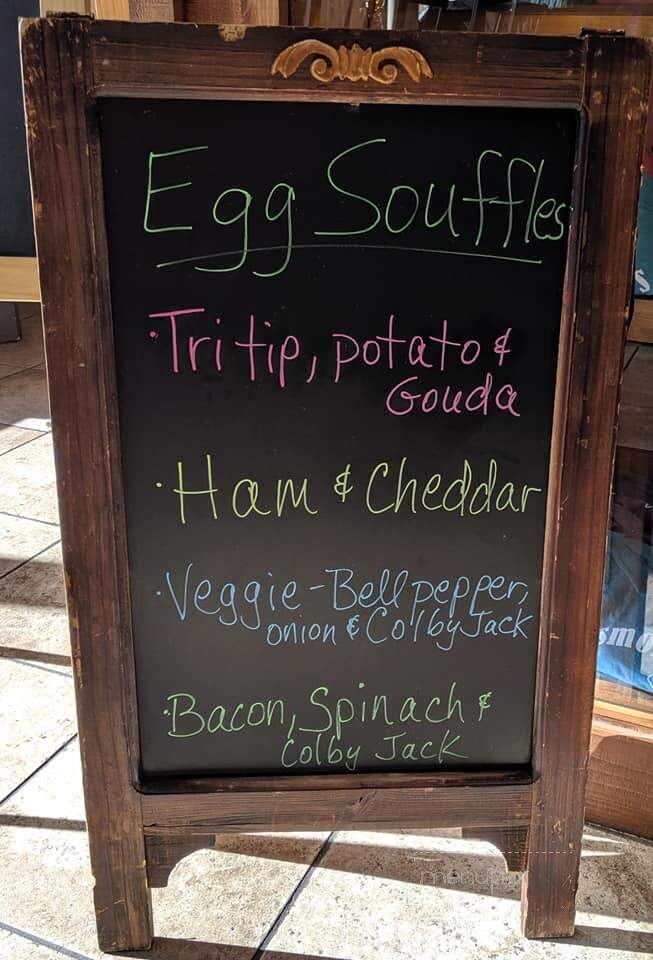 Egg Souffles
·Tri tip, potato &
Gouda
·Ham & Cheddar
·Veggie-Bell pepper,
onion & Colby Jack
·Bacon, Spinach &
Colby Jack